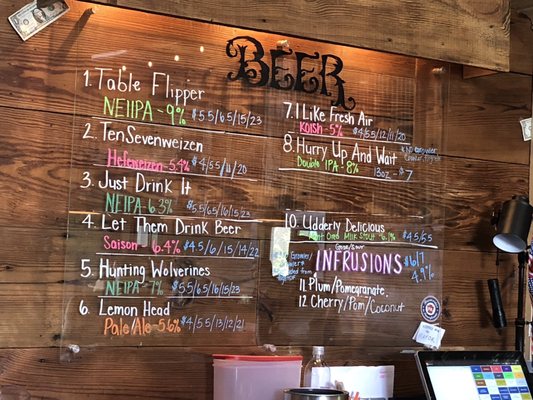 BEER
1. Table Flipper
NEIIPA - 9% $5.5/6.5/15/23
2. TenSevenweizen
Hefeweizen - 5.4% $4/5.5/11/20
3. Just Drink It
NEIPA - 6.3% $5.5/6.5/16/23
4. Let Them Drink Beer
Saison - 6.4% $4.5/6/15/14/22
5. Hunting Wolverines
NEIPA - 7% $5.5/6.5/16/23
6. Lemon Head
Pale Ale - 5.6% $4/5.5/13/12/21
7. I Like Fresh Air
Kolsh - 5% $4/5.5/12/11/20
8. Hurry Up And Wait
Double IPA - 8% 13oz - $7
10. Udderly Delicious
Oat Milk Stout - 6.1% $4.5/5.5
Gose/Sour
INFRUSIONS
$6/7
4.9%
11. Plum/Pomegranate
12 Cherry/Pom/Coconut